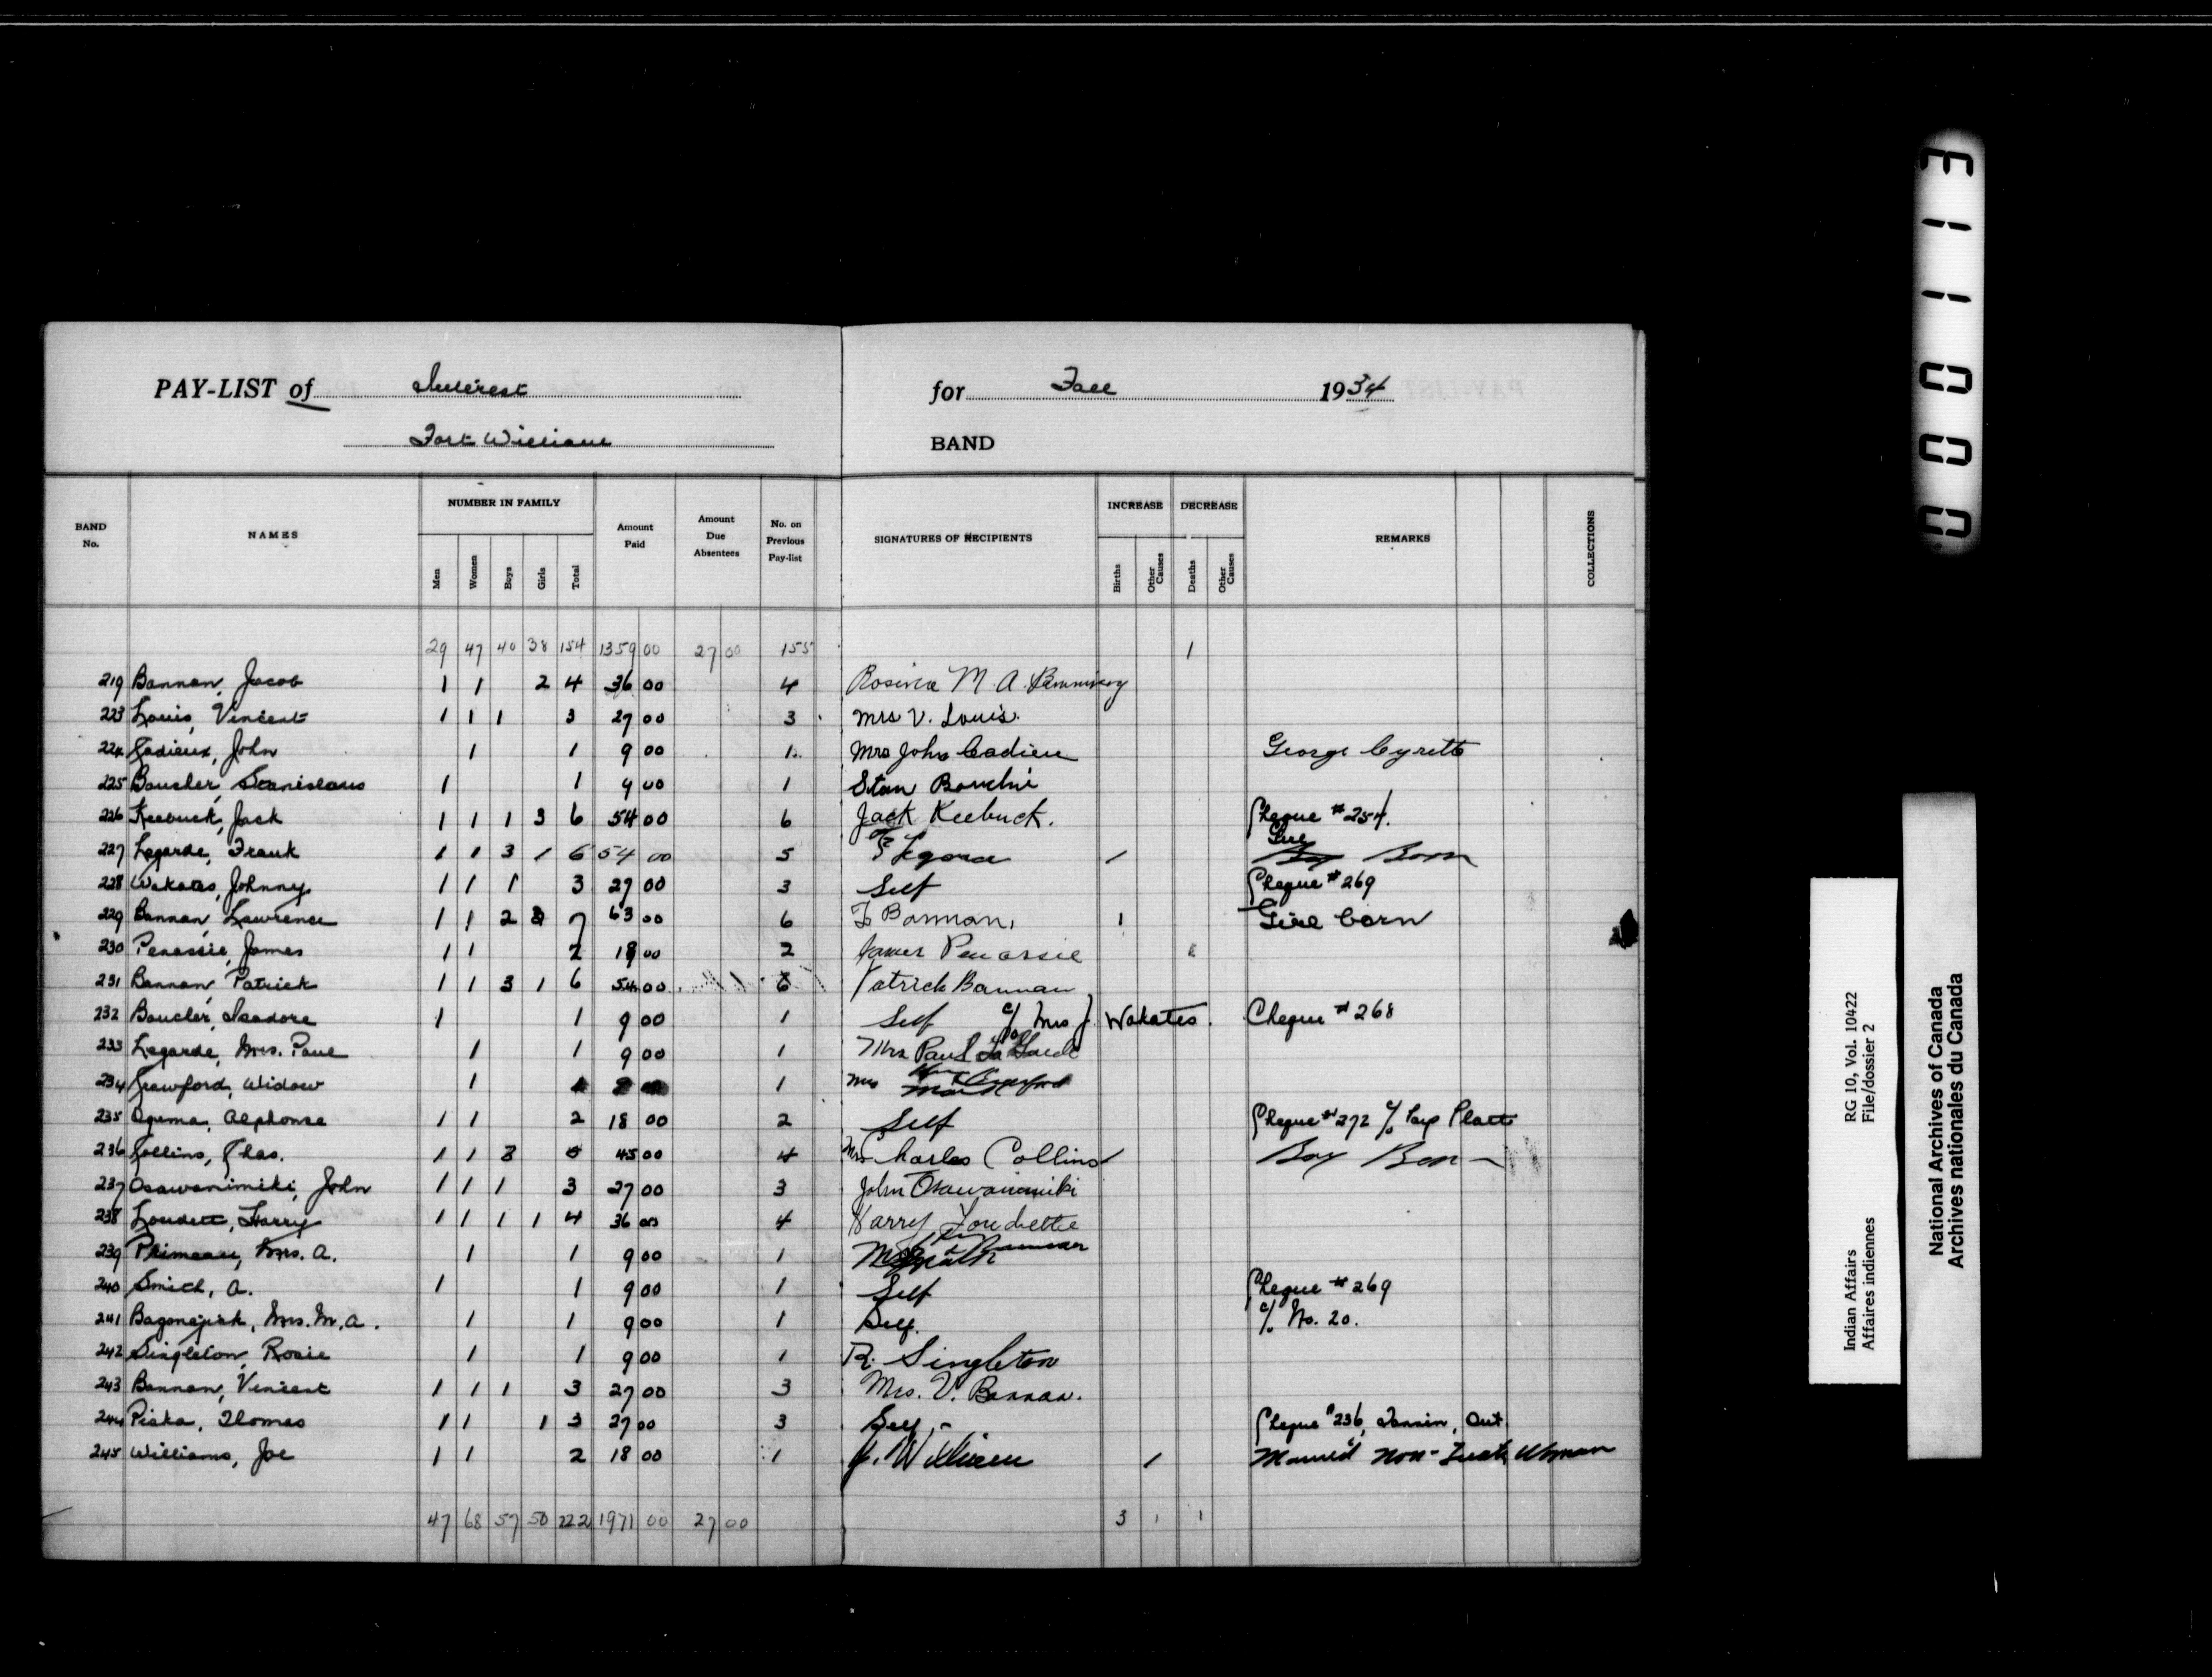 PAY-LIST of Interest for Fall 1934
Fort William BAND
BAND No. NAMES NUMBER IN FAMILY Men Women Boys Girls Total Amount Paid Amount Due Absentees No. on Previous Pay-list SIGNATURES OF RECIPIENTS INCREASE Births Other Causes DECREASE Deaths Other Causes REMARKS COLLECTIONS
29 47 40 38 154 1359 00 27 00 155 1
219 Bannan, Jacob 1 1 2 4 36 00 4 M. A.
223 Louis, Vincent 1 1 1 3 27 00 3 Mrs V. Louis.
224 Cadieux, John 1 1 9 00 1 Mrs John Cadieu George Cyrette
225 Boucher, Stanislaus 1 1 9 00 1 Stan Bouchie
226 Keebuck, Jack 1 1 1 3 6 54 00 6 Jack Keebuck. Cheque # 254.
227 Legarde, Frank 1 1 3 1 6 54 00 5 1 Girl Born
228 Wakates, Johnny 1 1 1 3 27 00 3 Self Cheque # 269
229 Bannan, Lawrence 1 1 2 3 7 63 00 6 Bannan, 1 Girl born
230 Penassie, James 1 1 2 18 00 2 James Penassie
231 Bannan, Patrick 1 1 3 1 6 54 00 6 Patrick Bannan
232 Boucher, Isadore 1 1 9 00 1 Self c/o Mrs J. Wakates. Cheque # 268
233 Legarde, Mrs. Paul 1 1 9 00 1 Mrs Paul La Garde
234 Crawford, Widow 1 1 Mrs Crawford
235 Oguma, Alphonse 1 1 2 18 00 2 Self Cheque # 272 c/o Platt
236 Collins, Chas. 1 1 3 5 45 00 4 Mrs Charles Collins 1 Boy Born
237 Osawanimiki, John 1 1 1 3 27 00 3 John Osawanimiki
238 Loudett, Harry 1 1 1 1 4 36 00 4 Harry Loudette
239 Primeau, Mrs. A. 1 1 9 00 1
240 Smith, A. 1 1 9 00 1 Self Cheque # 269
241 Mrs. M. A. 1 1 9 00 1 Self. c/o No. 20.
242 Singleton, Rosie 1 1 9 00 1 R. Singleton
243 Bannan, Vincent 1 1 1 3 27 00 3 Mrs. V. Bannan.
244 Piska, Thomas 1 1 1 3 27 00 3 Self Cheque # 236, Ont.
245 Williams, Joe 1 1 2 18 00 1 J. William 1 Married Non-Treaty Woman
47 68 57 50 222 1971 00 27 00 3 1 1
000113
Indian Affairs RG 10, Vol. 10422
Affaires indiennes File/dossier 2
National Archives of Canada
Archives nationales du Canada